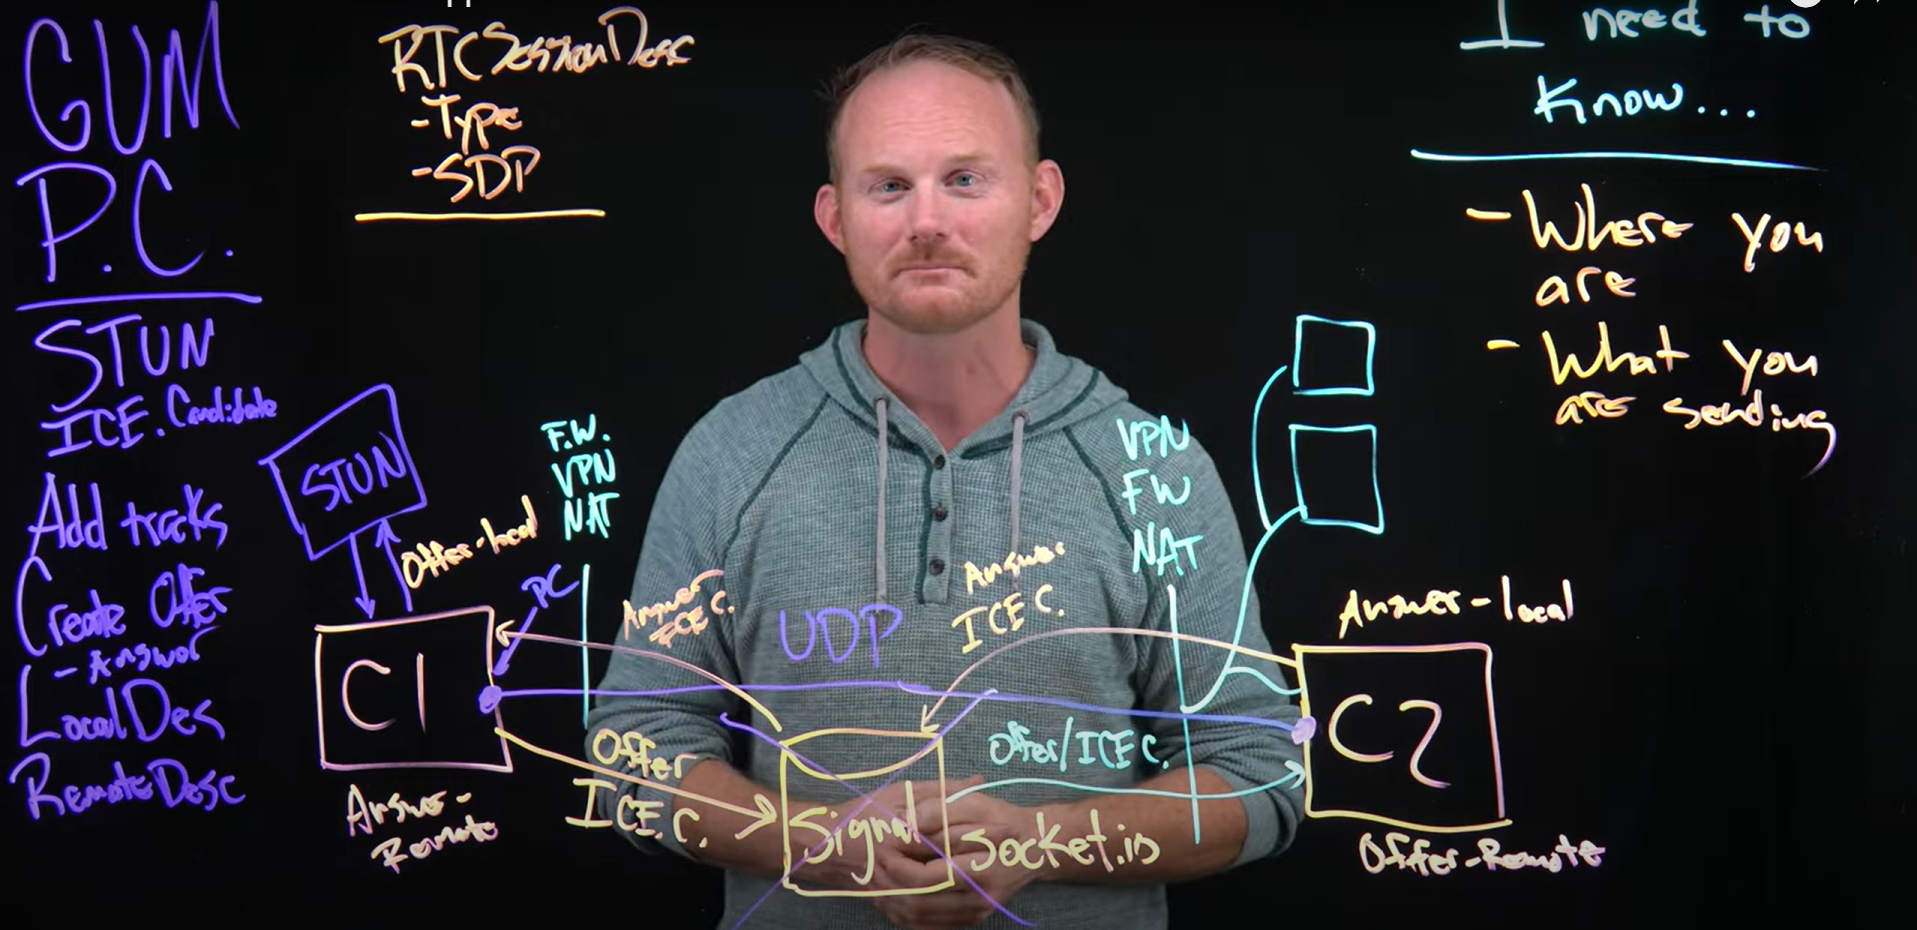 GUM
P.C.
STUN
ICE. Candidate
Add tracks
Create Offer
- Answer
LocalDes
RemoteDesc
RTCSessionDesc
- Type
- SDP
I need to
Know...
- Where you
are
- What you
are sending
STUN
Offer-local
PC
F.W.
VPN
NAT
C1
Answe-
Remote
Answer
ICE C.
UDP
Answer
ICE C.
Offer
ICE. C.
Signal
Offer/ICE C.
Socket.io
VPN
FW
NAT
Answer-local
C2
Offer-Remote